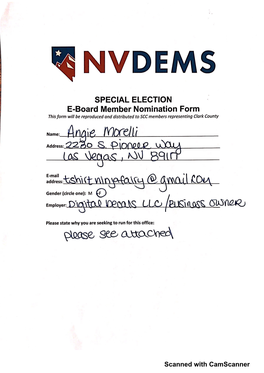 NVDEMS
SPECIAL ELECTION
E-Board Member Nomination Form
This form will be reproduced and distributed to SCC members representing Clark County
Name: Angie Morelli
Address: 2280 S. Pioneer Way
Las Vegas, NV 89117
E-mail
address: tshirtninjafairy@gmail.com
Gender (circle one): M F
Employer: Digital Decals LLC / Business Owner
Please state why you are seeking to run for this office:
please see attached
Scanned with CamScanner